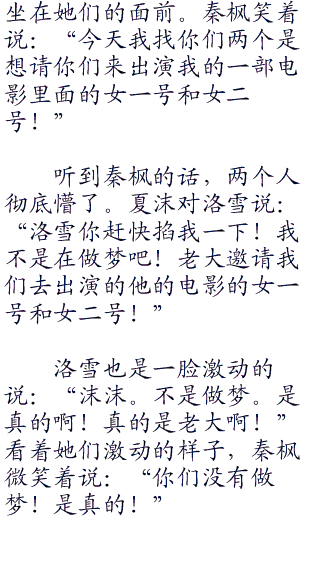 坐在她们的面前。秦枫笑着
说：“今天我找你们两个是
想请你们来出演我的一部电
影里面的女一号和女二
号！”
听到秦枫的话，两个人
彻底懵了。夏沫对洛雪说：
“洛雪你赶快掐我一下！我
不是在做梦吧！老大邀请我
们去出演的他的电影的女一
号和女二号！”
洛雪也是一脸激动的
说：“沫沫。不是做梦。是
真的啊！真的是老大啊！”
看着她们激动的样子，秦枫
微笑着说：“你们没有做
梦！是真的！”